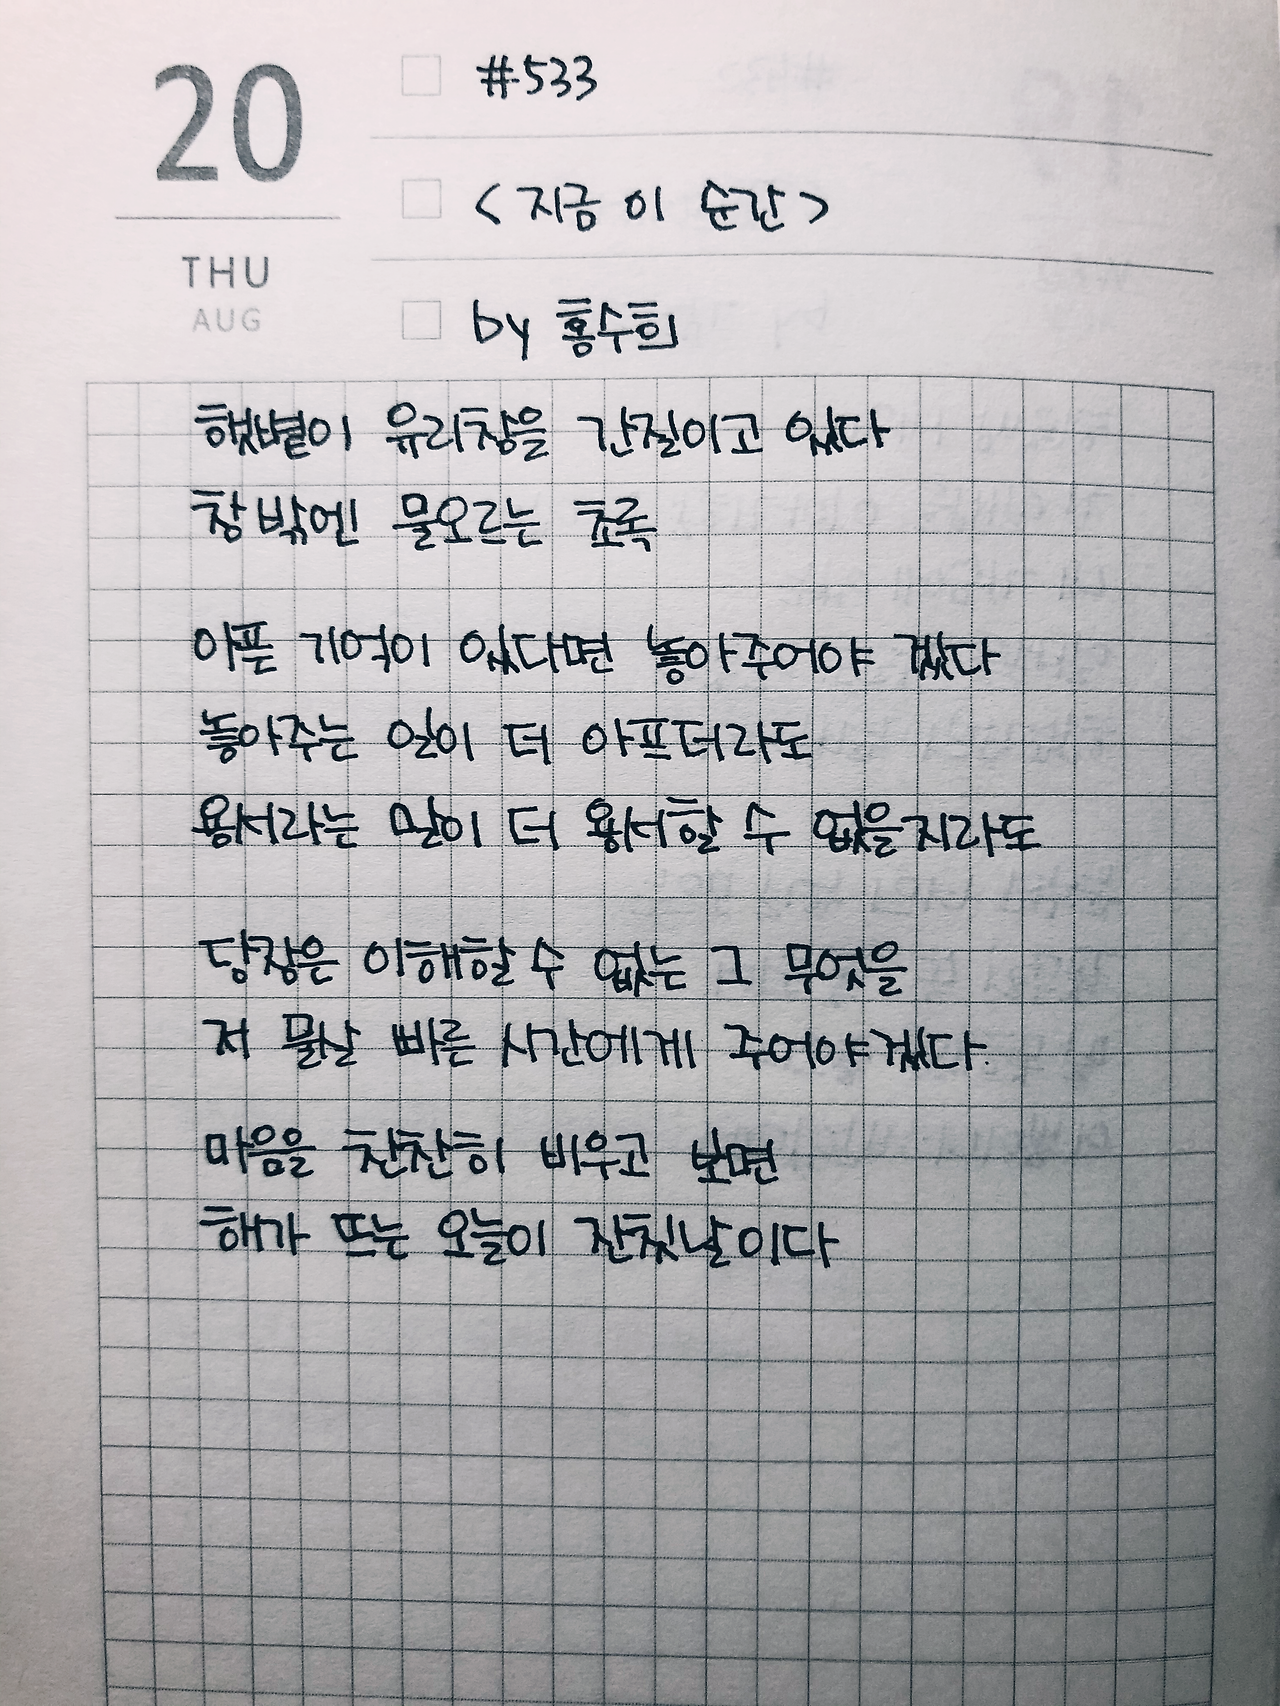 20
THU
AUG
#533
<지금 이 순간>
by 홍수희
햇볕이 유리창을 간질이고 있다
창밖엔 물오르는 초록
아픈 기억이 있다면 놓아주어야 겠다
놓아주는 일이 더 아프더라도
용서라는 말이 더 용서할 수 없을지라도
당장은 이해할 수 없는 그 무엇을
저 물살 빠른 시간에게 주어야겠다.
마음을 찬찬히 비우고 보면
해가 뜨는 오늘이 잔칫날이다